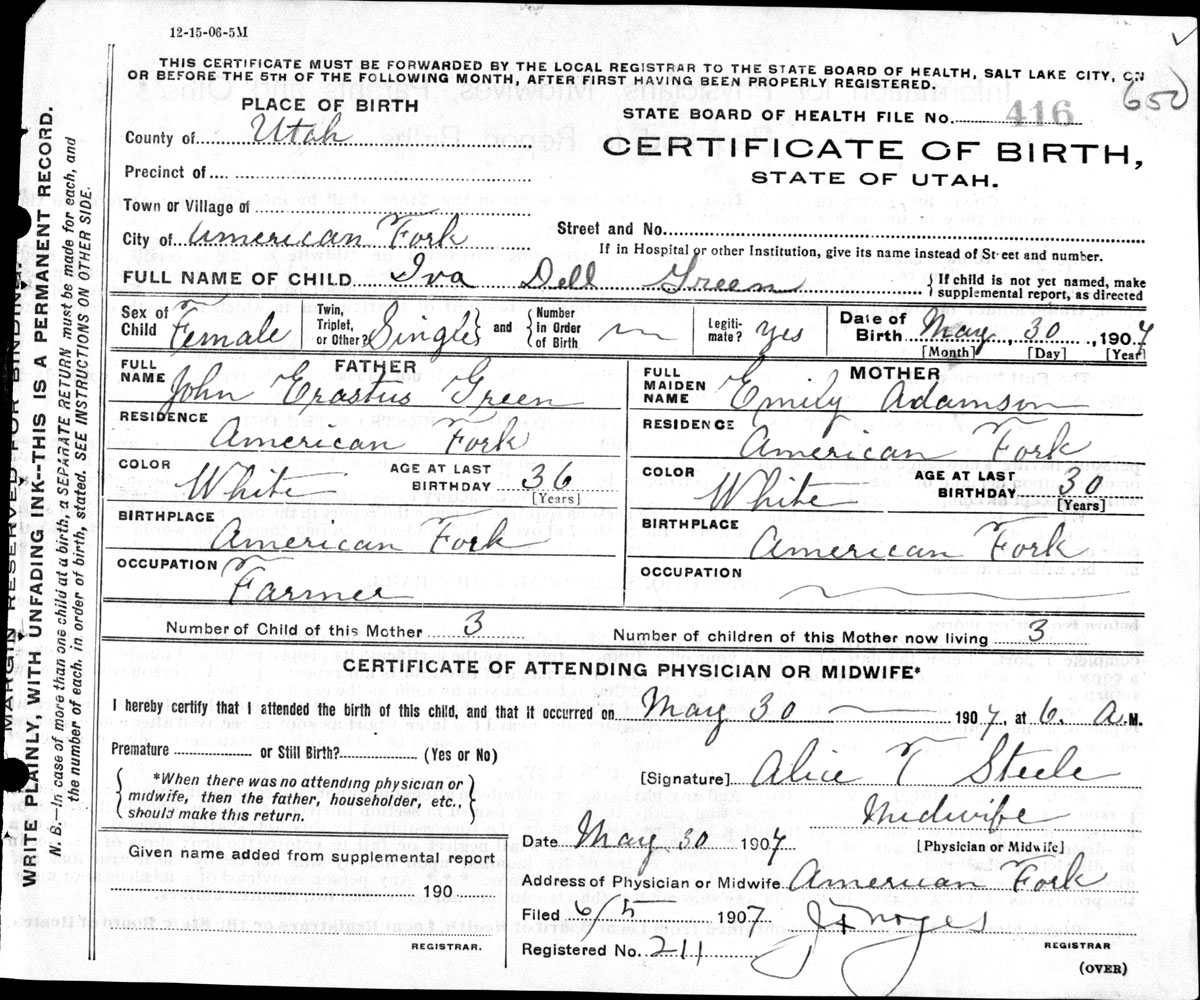 12-15-06-5M
THIS CERTIFICATE MUST BE FORWARDED BY THE LOCAL REGISTRAR TO THE STATE BOARD OF HEALTH, SALT LAKE CITY, ON
OR BEFORE THE 5TH OF THE FOLLOWING MONTH, AFTER FIRST HAVING BEEN PROPERLY REGISTERED.
650
PLACE OF BIRTH
STATE BOARD OF HEALTH FILE No. 416
County of Utah
CERTIFICATE OF BIRTH,
STATE OF UTAH.
Precinct of
Town or Village of
City of American Fork
Street and No.
If in Hospital or other Institution, give its name instead of Street and number.
FULL NAME OF CHILD Iva Dell Green
{ If child is not yet named, make
supplemental report, as directed
Sex of Child Female
Twin, Triplet, or Other? Single and { Number in Order of Birth
Legitimate? yes
Date of Birth May, 30, 1907
[Month] [Day] [Year]
FATHER
FULL NAME John Erastus Green
RESIDENCE American Fork
COLOR White
AGE AT LAST BIRTHDAY 36
[Years]
BIRTHPLACE American Fork
OCCUPATION Farmer
MOTHER
FULL MAIDEN NAME Emily Adamson
RESIDENCE American Fork
COLOR White
AGE AT LAST BIRTHDAY 30
[Years]
BIRTHPLACE American Fork
OCCUPATION
Number of Child of this Mother 3
Number of children of this Mother now living 3
CERTIFICATE OF ATTENDING PHYSICIAN OR MIDWIFE*
I hereby certify that I attended the birth of this child, and that it occurred on May 30 1907, at 6. A.M.
Premature or Still Birth? (Yes or No)
{ *When there was no attending physician or
midwife, then the father, householder, etc.,
should make this return. }
[Signature] Alice T Steele
Midwife
[Physician or Midwife]
Date May, 30 1907
Given name added from supplemental report
190
REGISTRAR.
Address of Physician or Midwife American Fork
Filed 6/5 1907
Registered No. 211
REGISTRAR
(OVER)
MARGIN RESERVED FOR BINDING.
WRITE PLAINLY, WITH UNFADING INK--THIS IS A PERMANENT RECORD.
N. B.—In case of more than one child at a birth, a SEPARATE RETURN must be made for each, and
the number of each, in order of birth, stated. SEE INSTRUCTIONS ON OTHER SIDE.